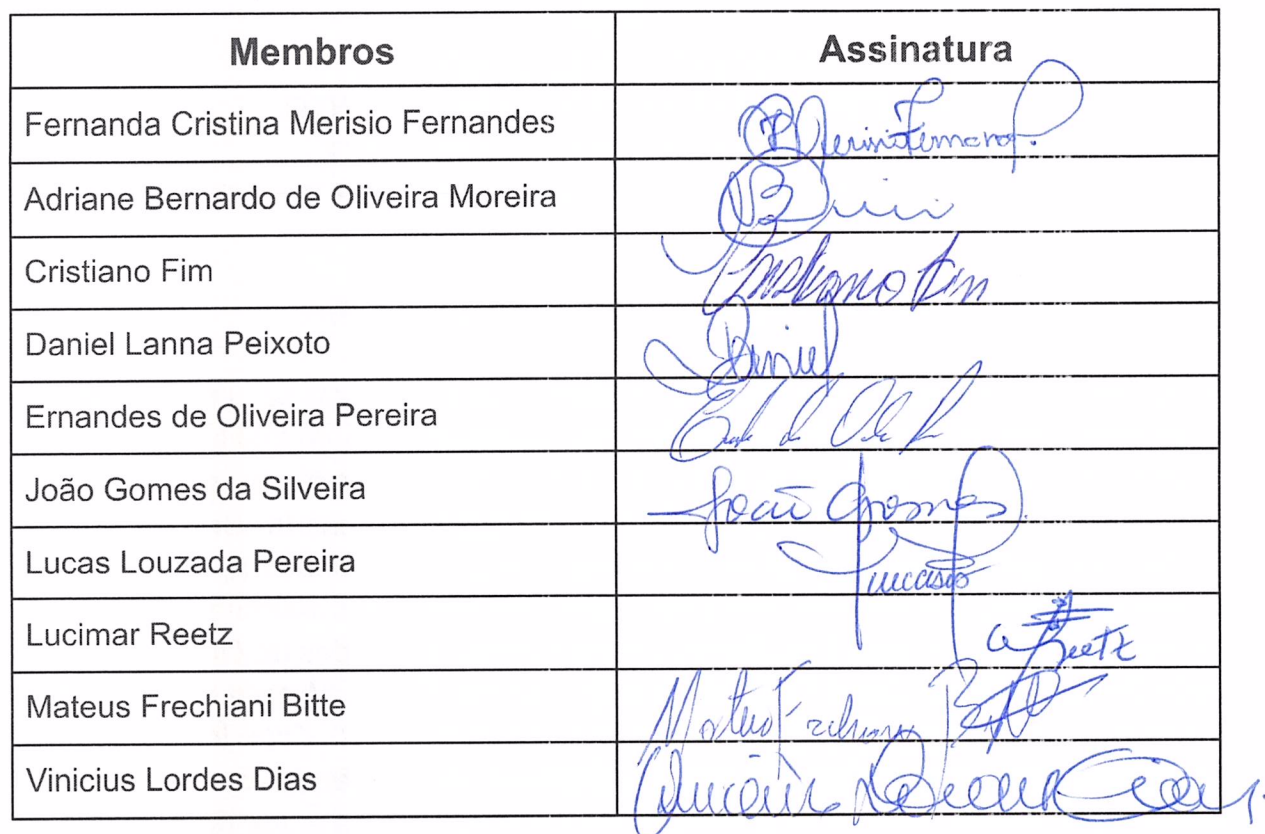 Membros Assinatura
Fernanda Cristina Merisio Fernandes
Adriane Bernardo de Oliveira Moreira
Cristiano Fim Cristiano Fim
Daniel Lanna Peixoto Daniel
Ernandes de Oliveira Pereira
João Gomes da Silveira João Gomes
Lucas Louzada Pereira Lucas
Lucimar Reetz Reetz
Mateus Frechiani Bitte Mateus Frechiani
Vinicius Lordes Dias